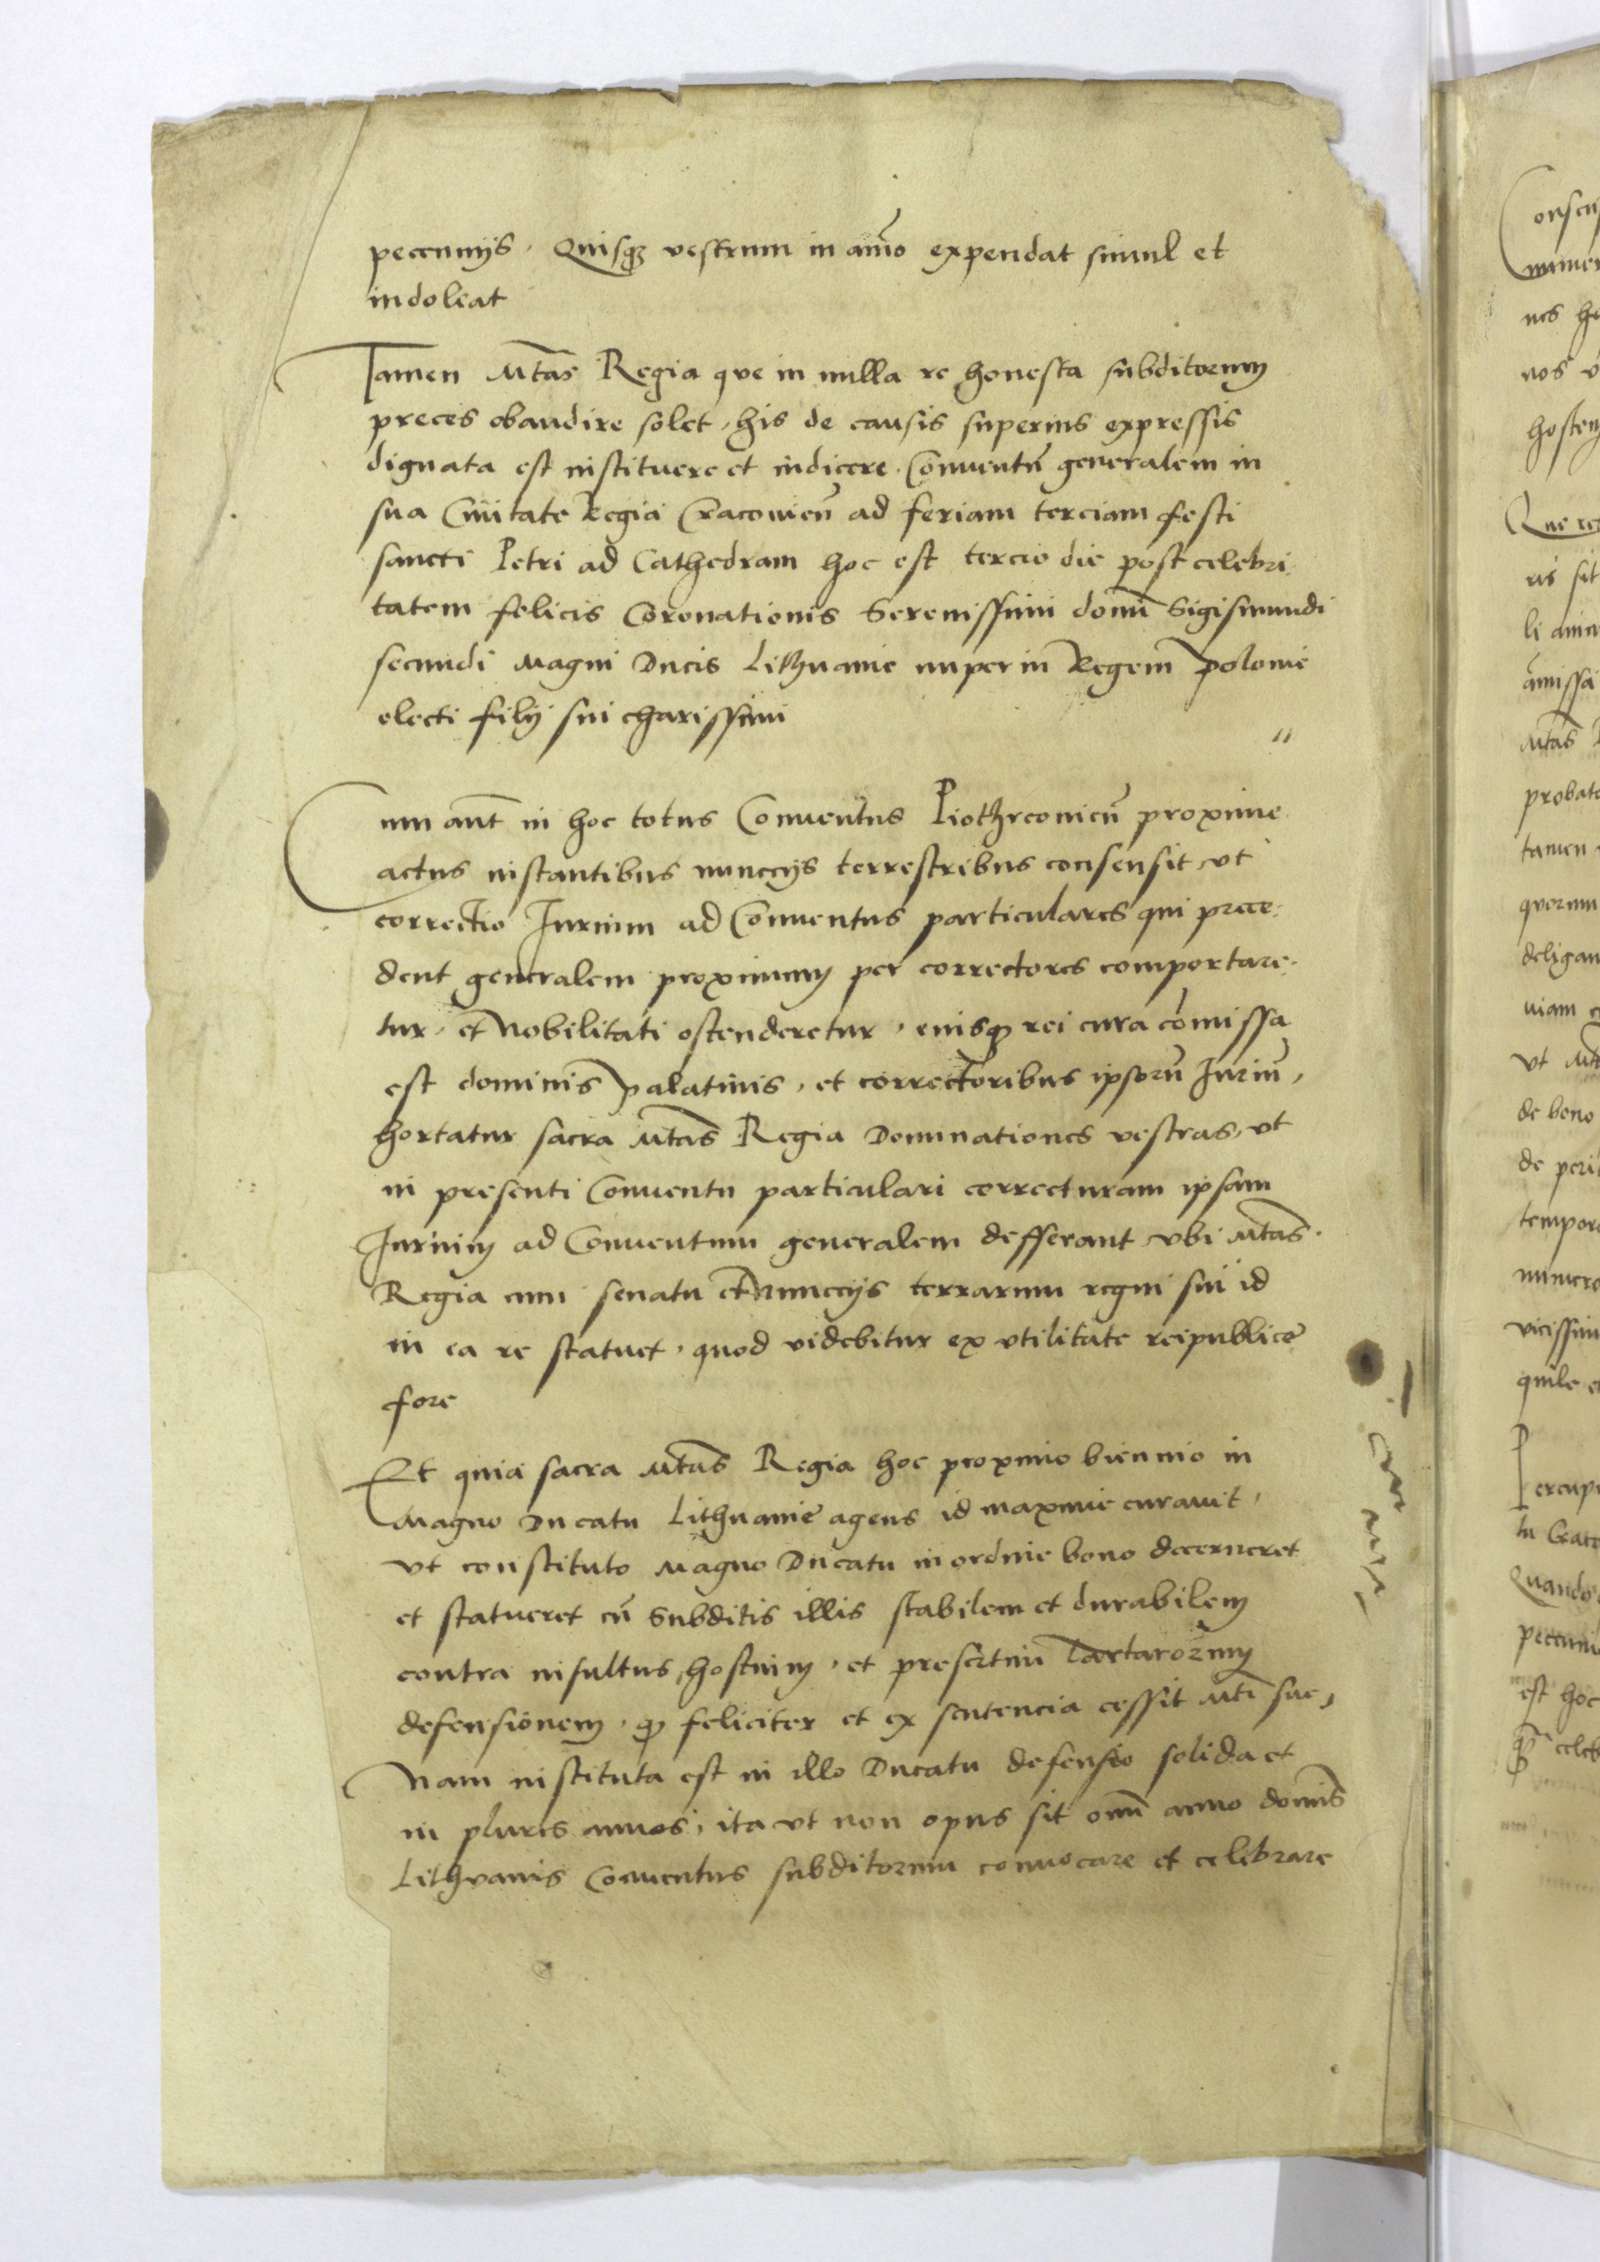 peccuniis. Quisq3 vestrum in anno expendat simul et
indoleat
Tamen Mtas Regia que in nulla re honesta subditorum
preces obaudire solet, his de causis superius expressis
dignata est instituere et indicere Conventu generalem in
sua Civitate Regia Cracovien ad feriam terciam festi
sancti Petri ad Cathedram hoc est tercio die post celebri
tatem felicis Coronationis Serenissimi domi Sigismundi
secundi Magni Ducis Lithuanie nuper in Regem Polonie
electi filij sui charissimi
Cum aut in hoc totus Conventus Piothrconien proxime
actus instantibus nunccijs terrestribus consensit, ut
correctio Jurium ad Conventus particulares qui prece
dent generalem proximum per correctores comportare
tur, et Nobilitati ostenderetur, cuisq3 rei cura comissa
est dominis Palatinis, et correctoribus ipsoru Juriu,
hortatur sacra Mtas Regia Dominationes vestras, ut
in presenti Conventu particulari correcturam ipsam
Jurium ad Conventum generalem defferant, ubi Mtas
Regia cum senatu et Nunccijs terrarum regni sui id
in ea re statuet, quod videbitur ex utilitate reipublice
fore
Et quia sacra Mtas Regia hoc proximo biennio in
Magno Ducatu Lithuanie agens id maxime curavit,
ut constituto Magno Ducatu in ordine bono decerneret
et statueret cu Subditis illis stabilem et durabilem
contra insultus hostium, et presertim Tartarorum
defensionem, q feliciter et ex sentencia cessit Mti sue,
Nam instituta est in illo Ducatu defensio solida et
in plures annos, ita ut non opus sit omi anno domis
Lithuanis Conventus subditorum convocare et celebrare
Quando
est hoc